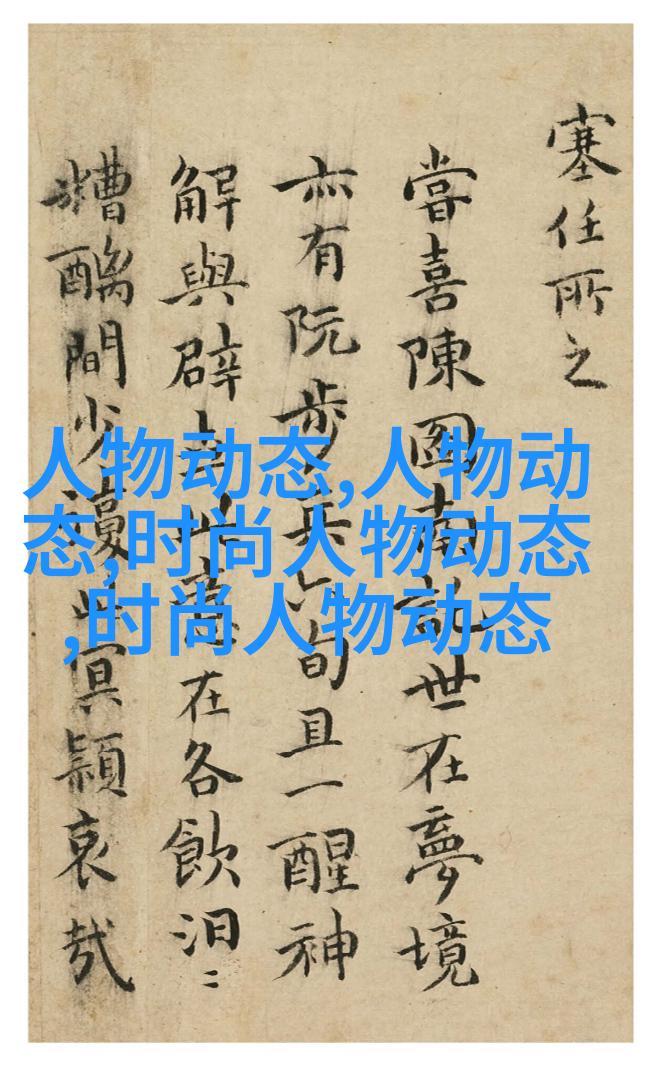 塞任所之
當喜陳圖南託世在夢境
亦有阮步兵六旬且一醒神
解與辟
在各飲汨〻
糟醨間少
冥穎哀哉
人物动态,人物动
态,时尚人物动态
,时尚人物动态